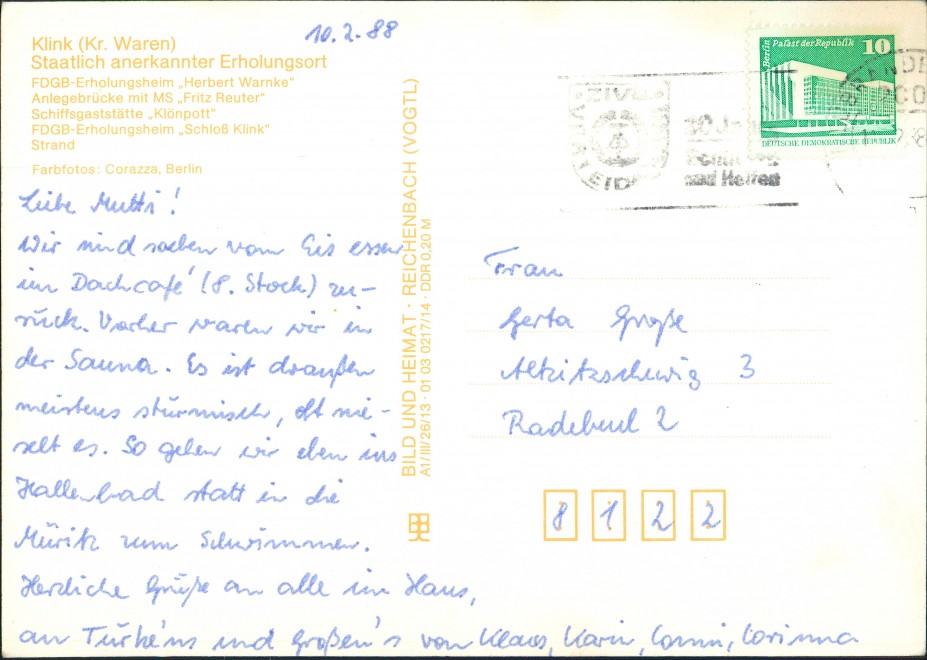 10.2.88
Klink (Kr. Waren)
Staatlich anerkannter Erholungsort
FDGB-Erholungsheim „Herbert Warnke“
Anlegebrücke mit MS „Fritz Reuter“
Schiffsgaststätte „Klönpott“
FDGB-Erholungsheim „Schloß Klink“
Strand
Farbfotos: Corazza, Berlin
Liebe Mutti!
Wir sind soeben vom Eis essen
im Dachcafé (8. Stock) zu-
rück. Vorher waren wir in
der Sauna. Es ist draußen
meistens stürmisch, oft nie-
selt es. So gehen wir eben ins
Hallenbad statt in die
Müritz zum Schwimmen.
Herzliche Grüße an alle im Haus,
an Türke's und Großen's von Klaus, Karin, Conni, Corinna
BILD UND HEIMAT · REICHENBACH (VOGTL)
A1/III/26/13 · 01 03 0217/14 · DDR 0,20 M
Berlin Palast der Republik 10
DEUTSCHE DEMOKRATISCHE REPUBLIK
ZIVIL
und Helfen
Frau
Gerta Große
Altzitzschewig 3
Radebeul 2
8 1 2 2